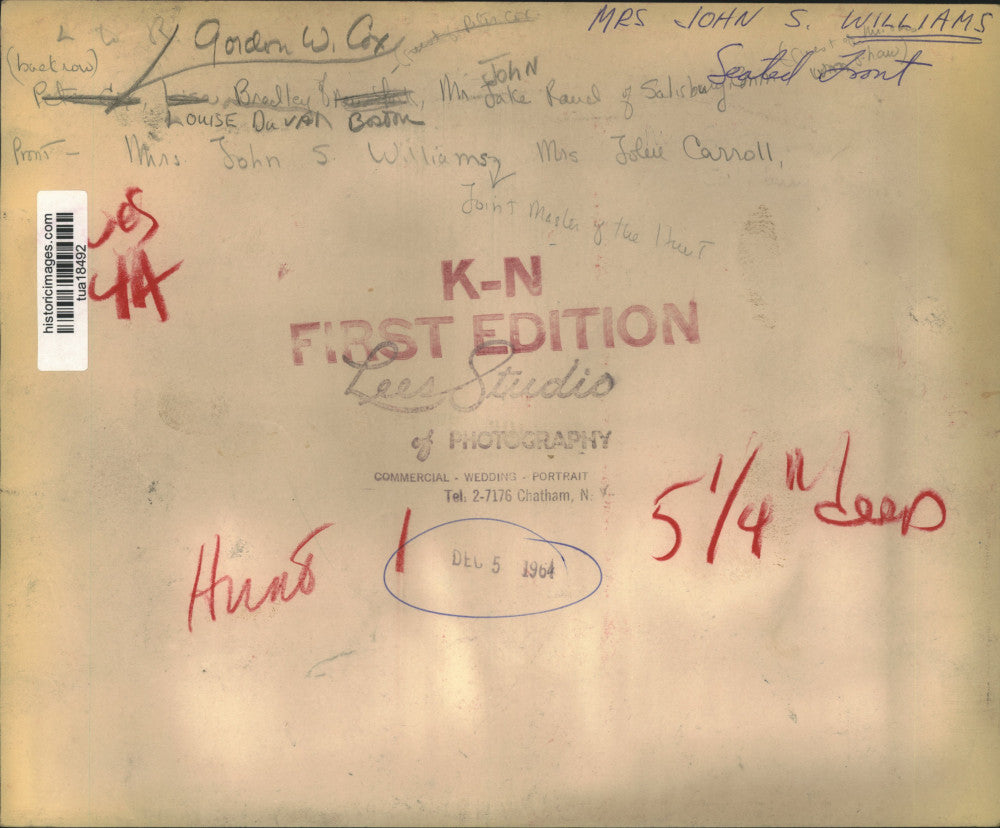 MRS JOHN S. WILLIAMS
Seated Front
L to R
Gordon W. Cox
(back row)
Bradley &
Mr. John Jake Rand of Salisbury
LOUISE DuVAN BOSTON
Front - Mrs John S. Williams, Mrs Jolie Carroll,
Joint Master of the Hunt
historicimages.com
tua18492
4A
K-N
FIRST EDITION
Lees Studio
of PHOTOGRAPHY
COMMERCIAL - WEDDING - PORTRAIT
Tel: 2-7176 Chatham, N. Y.
5 1/4" deep
Hunt 1
DEC 5 1964